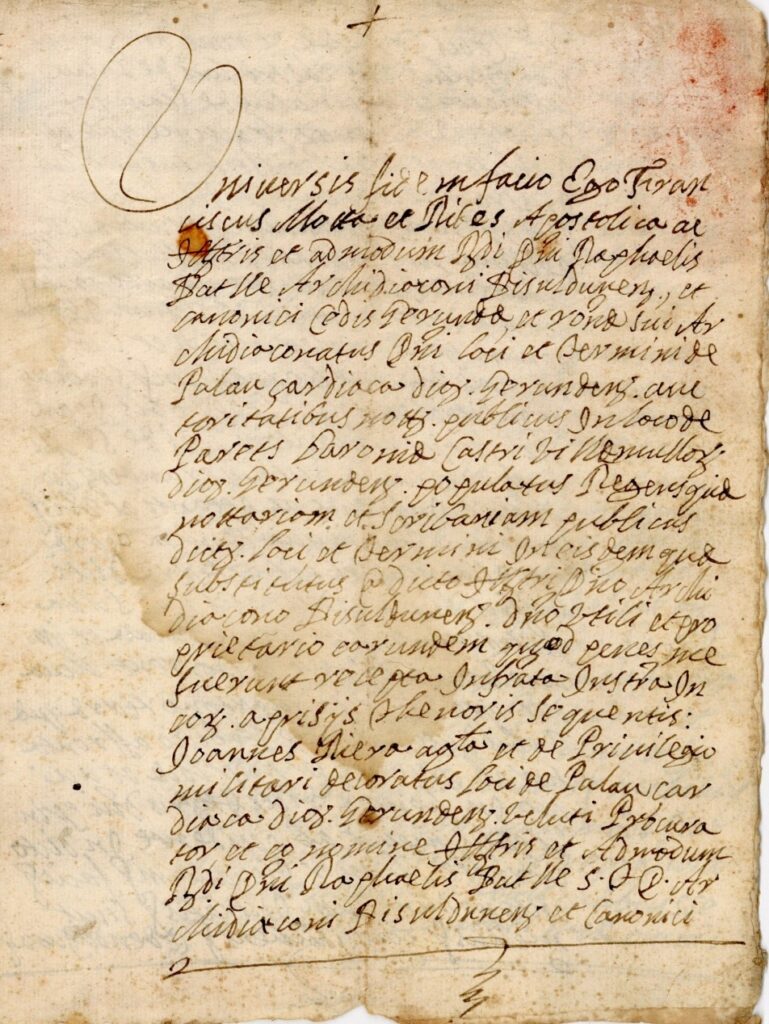 Universis fidem facio Ego Fran
ciscus Motta et Ribes Apostolica ac
Illtris et admodum Rdi Dni Raphaelis
Batlle Archidiaconi Bisuldunenz., et
canonici Sedis Gerundæ et ronæ sui Ar
chidiaconatus Dni loci et termini de
Palau çardiaca dioz. Gerundenz. auc
toritatibus nottz. publicus In loco de
Parets baroniæ Castri Villdemullorz
dioz. Gerundenz. populatus Regensquæ
nottariam et scribaniam publicas
dictz. loci et termini In eisdemquæ
substitutus a dicto Illtri Dno Archi
diacono Bisuldunenz. Dno Utili et pro
prietario earundem quod penes me
fuerunt recepta Infrata Instra In
eoz. aprisys thenoris sequentis:
Joannes Riera agla et de Privilegio
militari decoratus loci de Palau çar
diaca dioz. Gerundenz. veluti Procura
tor et eo nomine Illtris et Admodum
Rdi Dni Raphaelis Batlle Ar
chidiaconi Bisuldunenz et Canonici